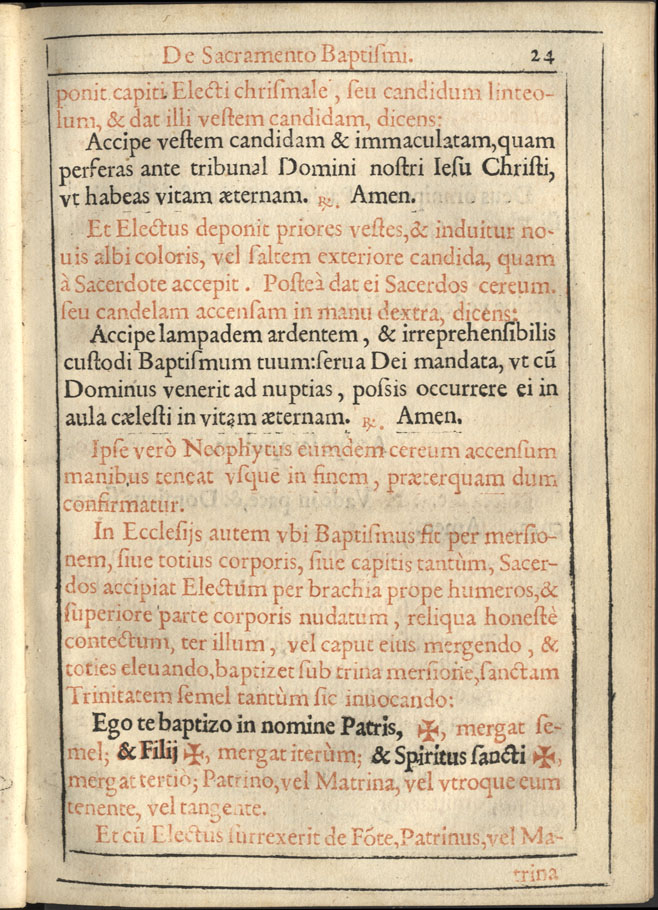 De Sacramento Baptiſmi. 24
ponit capiti Electi chriſmale, ſeu candidum linteo-
lum, & dat illi veſtem candidam, dicens:
Accipe veſtem candidam & immaculatam, quam
perferas ante tribunal Domini noſtri Ieſu Chriſti,
vt habeas vitam æternam. ℟. Amen.
Et Electus deponit priores veſtes, & induitur no-
uis albi coloris, vel ſaltem exteriore candida, quam
à Sacerdote accepit. Poſteà dat ei Sacerdos cereum.
ſeu candelam accenſam in manu dextra, dicens:
Accipe lampadem ardentem, & irreprehenſibilis
cuſtodi Baptiſmum tuum: ſerua Dei mandata, vt cũ
Dominus venerit ad nuptias, poſsis occurrere ei in
aula cæleſti in vitam æternam. ℟. Amen.
Ipſe verò Neophytus eumdem cereum accenſum
manibus teneat vſque in finem, præterquam dum
confirmatur.
In Eccleſijs autem vbi Baptiſmus fit per merſio-
nem, ſiue totius corporis, ſiue capitis tantùm, Sacer-
dos accipiat Electum per brachia prope humeros, &
ſuperiore parte corporis nudatum, reliqua honeſtè
contectum, ter illum, vel caput eius mergendo, &
toties eleuando, baptizet ſub trina merſione, ſanctam
Trinitatem ſemel tantùm ſic inuocando:
Ego te baptizo in nomine Patris, ✠, mergat ſe-
mel; & Filij ✠, mergat iterùm; & Spiritus ſancti ✠,
mergat tertiò; Patrino, vel Matrina, vel vtroque eum
tenente, vel tangente.
Et cũ Electus ſurrexerit de Fõte, Patrinus, vel Ma-
trina